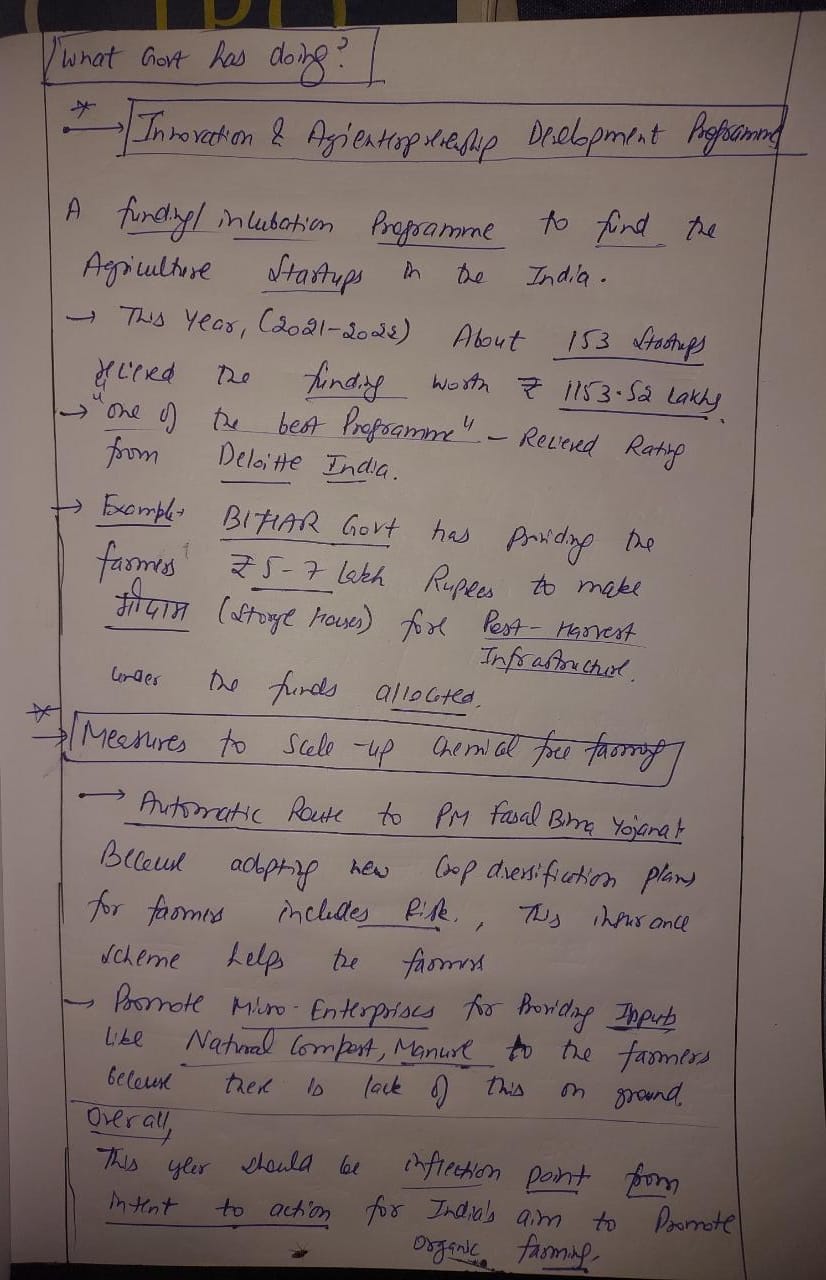 What Govt has doing?
* → Innovation & Agientrepreneship Development Programme
A funding/ incubation Programme to find the
Agriculture Startups in the India.
→ This Year, (2021-2022) About 153 Startups
recieved the funding worth ₹ 1153.52 Lakhs.
→ "one of the best Programme" - Recieved Rating
from Deloitte India.
→ Example→ BIHAR Govt has providing the
farmers ₹ 5-7 lakh Rupees to make
गोदाम (Storge Houses) for Post-Harvest
Infrastructure.
under the funds allocated.
* → Measures to Scale-up Chemical free farming
→ Automatic Route to PM Fasal Bima Yojana
Because adopting new Crop diversification plans
for farmers includes Risk., This insurance
scheme helps the farmers
→ Promote Micro-Enterprises for Providing Inputs
Like Natural Compost, Manure to the farmers
because there is lack of this on ground.
Overall,
This year should be inflection point from
intent to action for India's aim to Promote
Organic farming.